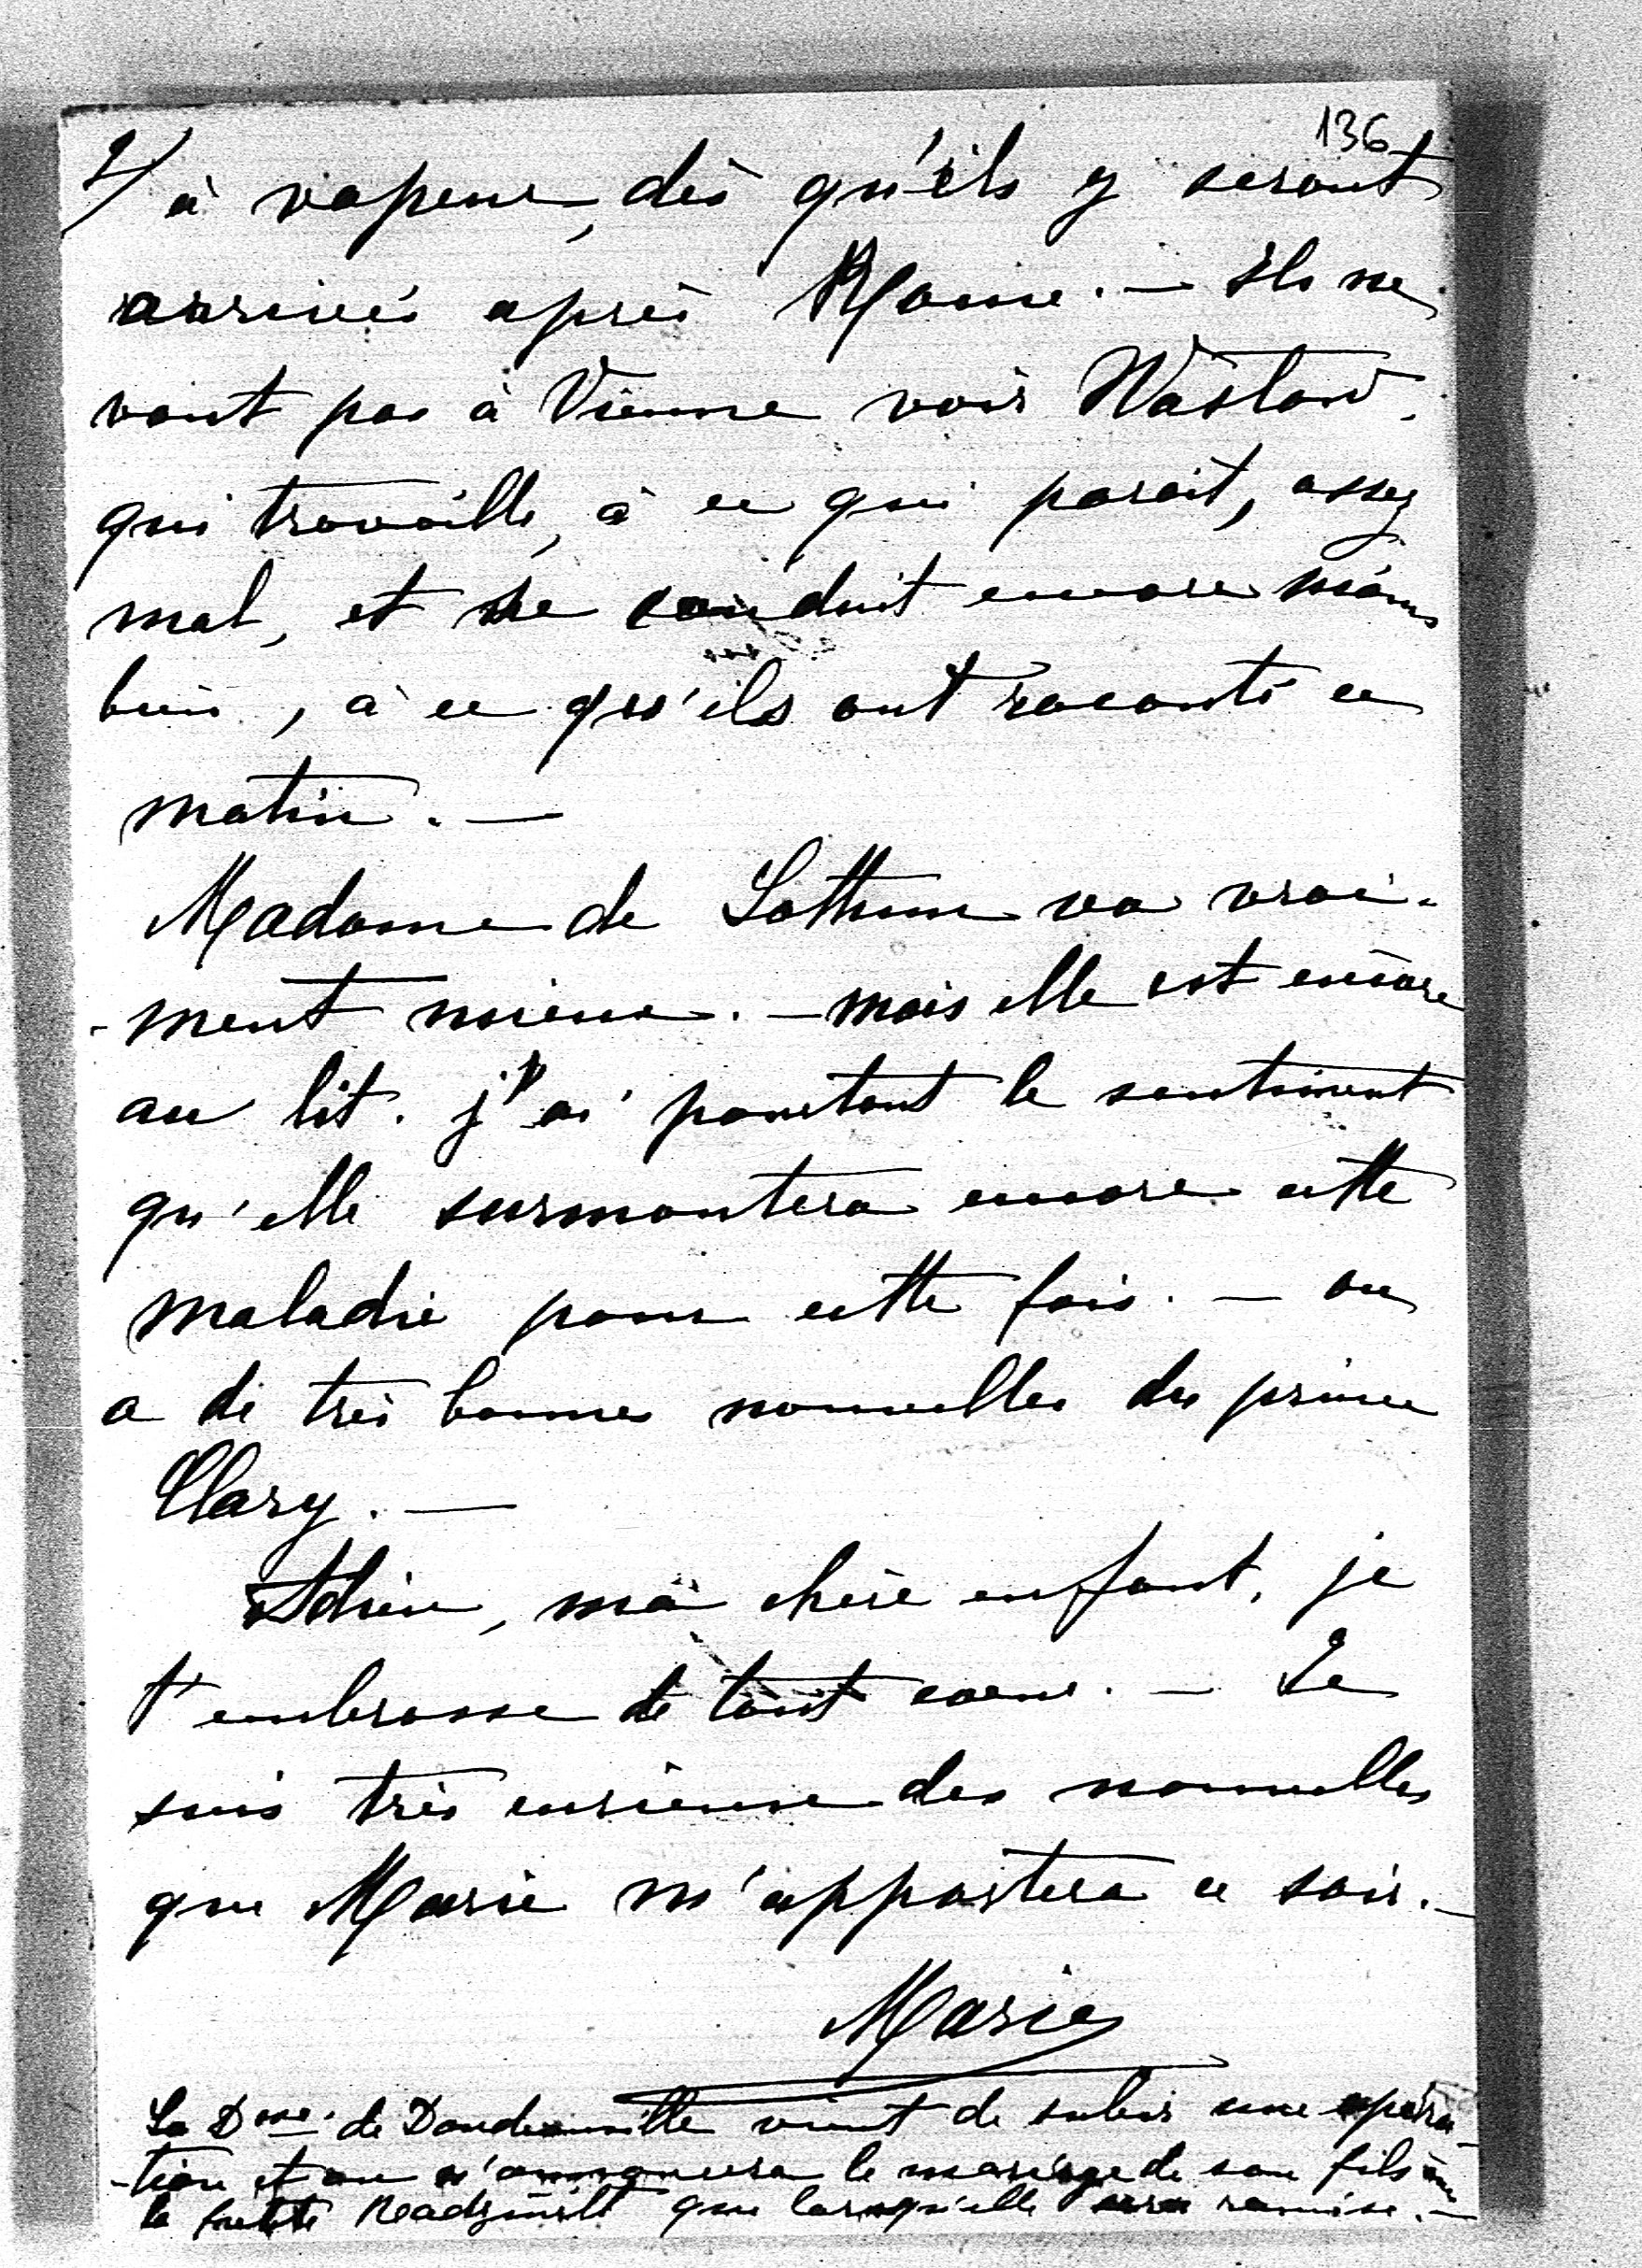 136
2/ à vapeur, dès qu'ils y seront
arrivés après Rome. — Ils ne
vont pas à Vienne voir
qui travaille, à ce qui parait, assez
mal, et se conduit encore moins
bien, à ce qu'ils ont raconté ce
matin. —
Madame de Lottum va vrai-
-ment mieux. — mais elle est encore
au lit. j'ai pourtant le sentiment
qu'elle surmontera encore cette
maladie pour cette fois. — on
a de très bonnes nouvelles du prince
Clary. —
Adieu, ma chère enfant, je
t'embrasse de tout coeur. — Je
suis très curieuse des nouvelles
que Marie m'apportera ce soir. —
Marie
La Dsse. de Doudeauville vient de subir une opéra-
-tion et on n'annoncera le mariage de son fils avec
la petite que lorsqu'elle sera remise. —